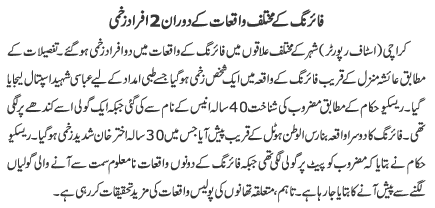 فائرنگ کے مختلف واقعات کے دوران 2 افراد زخمی
کراچی (اسٹاف رپورٹر) شہر کے مختلف علاقوں میں فائرنگ کے واقعات میں دو افراد زخمی ہو گئے۔ تفصیلات کے
مطابق عائشہ منزل کے قریب فائرنگ کے واقعہ میں ایک شخص زخمی ہو گیا جسے طبی امداد کے لیے عباسی شہید اسپتال لیجایا
گیا۔ ریسکیو حکام کے مطابق مضروب کی شناخت 40 سالہ انیس کے نام سے کی گئی جبکہ ایک گولی اسے کندھے پر لگی
تھی۔ فائرنگ کا دوسرا واقعہ بنارس الوطن ہوٹل کے قریب پیش آیا جس میں 30 سالہ اختر خان شدید زخمی ہو گیا۔ ریسکیو
حکام نے بتایا کہ مضروب کو پیٹ پر گولی لگی تھی جبکہ فائرنگ کے دونوں واقعات نامعلوم سمت سے آنے والی گولیاں
لگنے سے پیش آنے کا بتایا جا رہا ہے۔ تاہم، متعلقہ تھانوں کی پولیس واقعات کی مزید تحقیقات کر رہی ہے۔